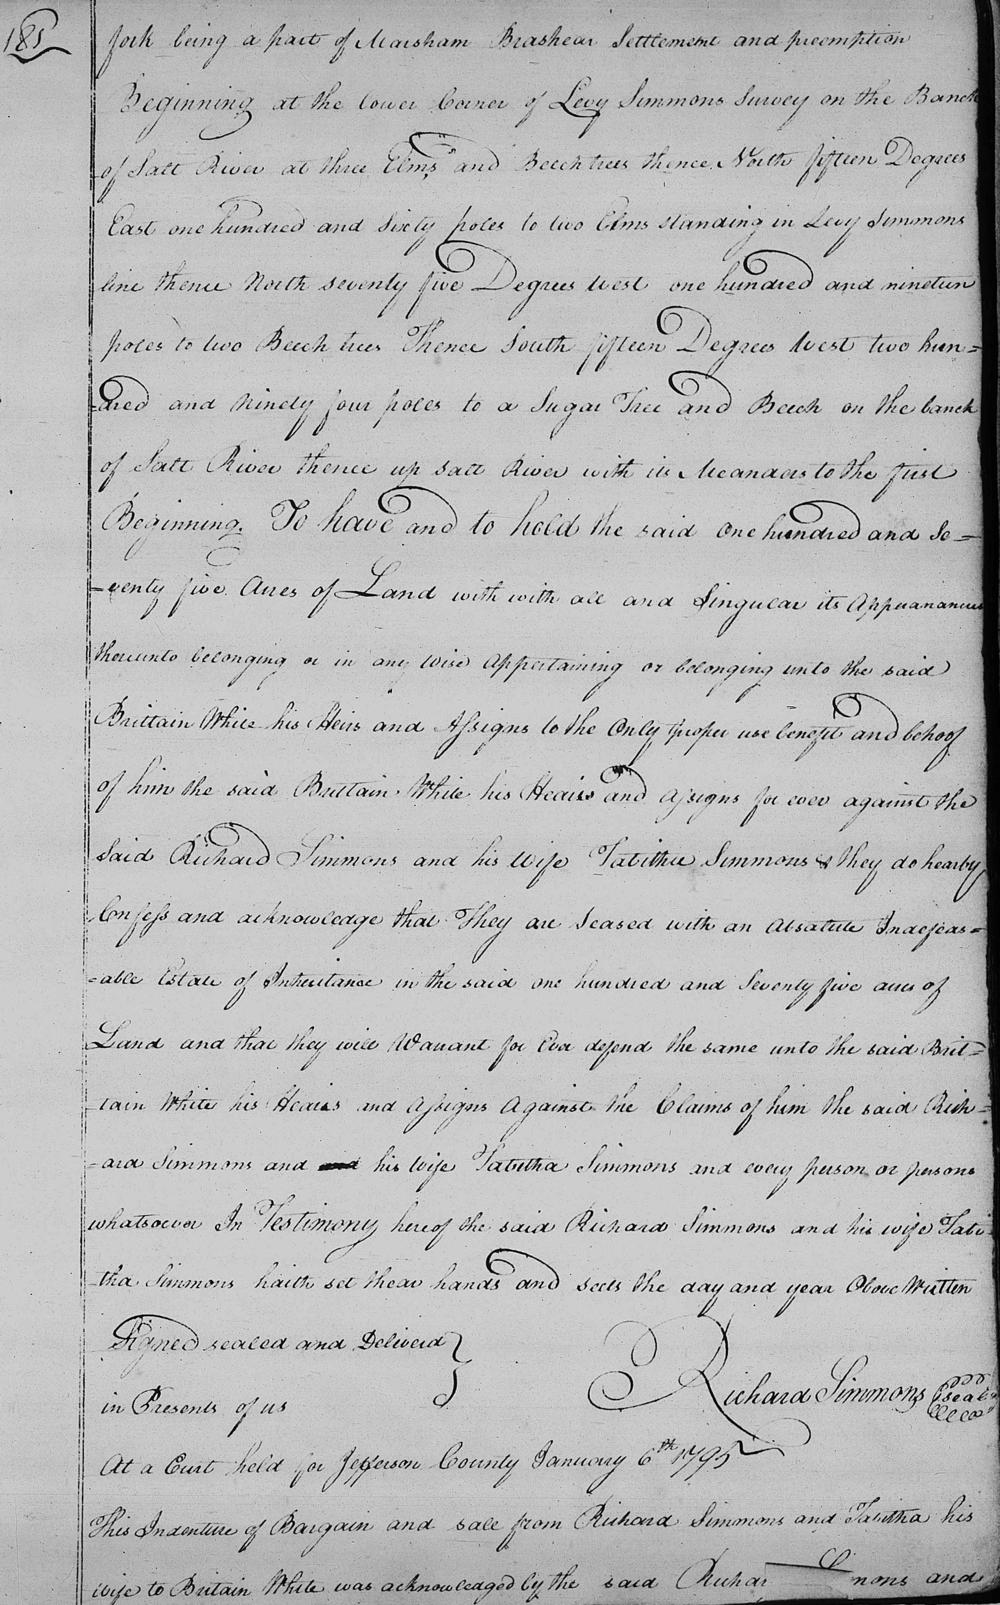 185
fork being a part of Marsham Brashear Settlement and preemption
Beginning at the lower Corner of Levy Simmons Survey on the Banck
of Salt River at three Elms and Beech trees thence North fifteen Degrees
East one hundred and Sixty poles to two Elms standing in Levy Simmons
line thence North seventy five Degrees West one hundred and nineteen
poles to two Beech trees Thence South fifteen Degrees West two hun=
=dred and Ninety four poles to a Sugar Tree and Beech on the banck
of Salt River thence up Salt River with its Meanders to the first
Beginning. To have and to hold the said one hundred and Se=
=venty five Acres of Land with with all and Singular its Appuranances
thereunto belonging or in any wise Appertaining or belonging unto the said
Brittain White his Heirs and Assigns to the Only proper use benefit and behoof
of him the said Brittain White his Heairs and Assigns for ever against the
Said Richard Simmons and his Wife Tabitha Simmons & they do hearby
Confess and acknowledge that They are Seased with an Absatute Indefeas=
=able Estate of Inheritance in the said one hundred and Seventy five acres of
Land and that they will Warrant for Ever defend the same unto the said Brit=
=tain White his Heairs and Assigns Against the Claims of him the said Rich=
=ard Simmons and and his Wife Tabitha Simmons and every person or persons
whatsoever In Testimony hereof the said Richard Simmons and his wife Tabi=
=tha Simmons haith set thear hands and seels the day and year Above Written
Signed sealed and Deliverd
in Presents of us
Richard Simmons Seal
At a Curt held for Jefferson County January 6th 1795
This Indenture of Bargain and sale from Richard Simmons and Tabitha his
wife to Britain White was acknowledged by the said Richar nons and